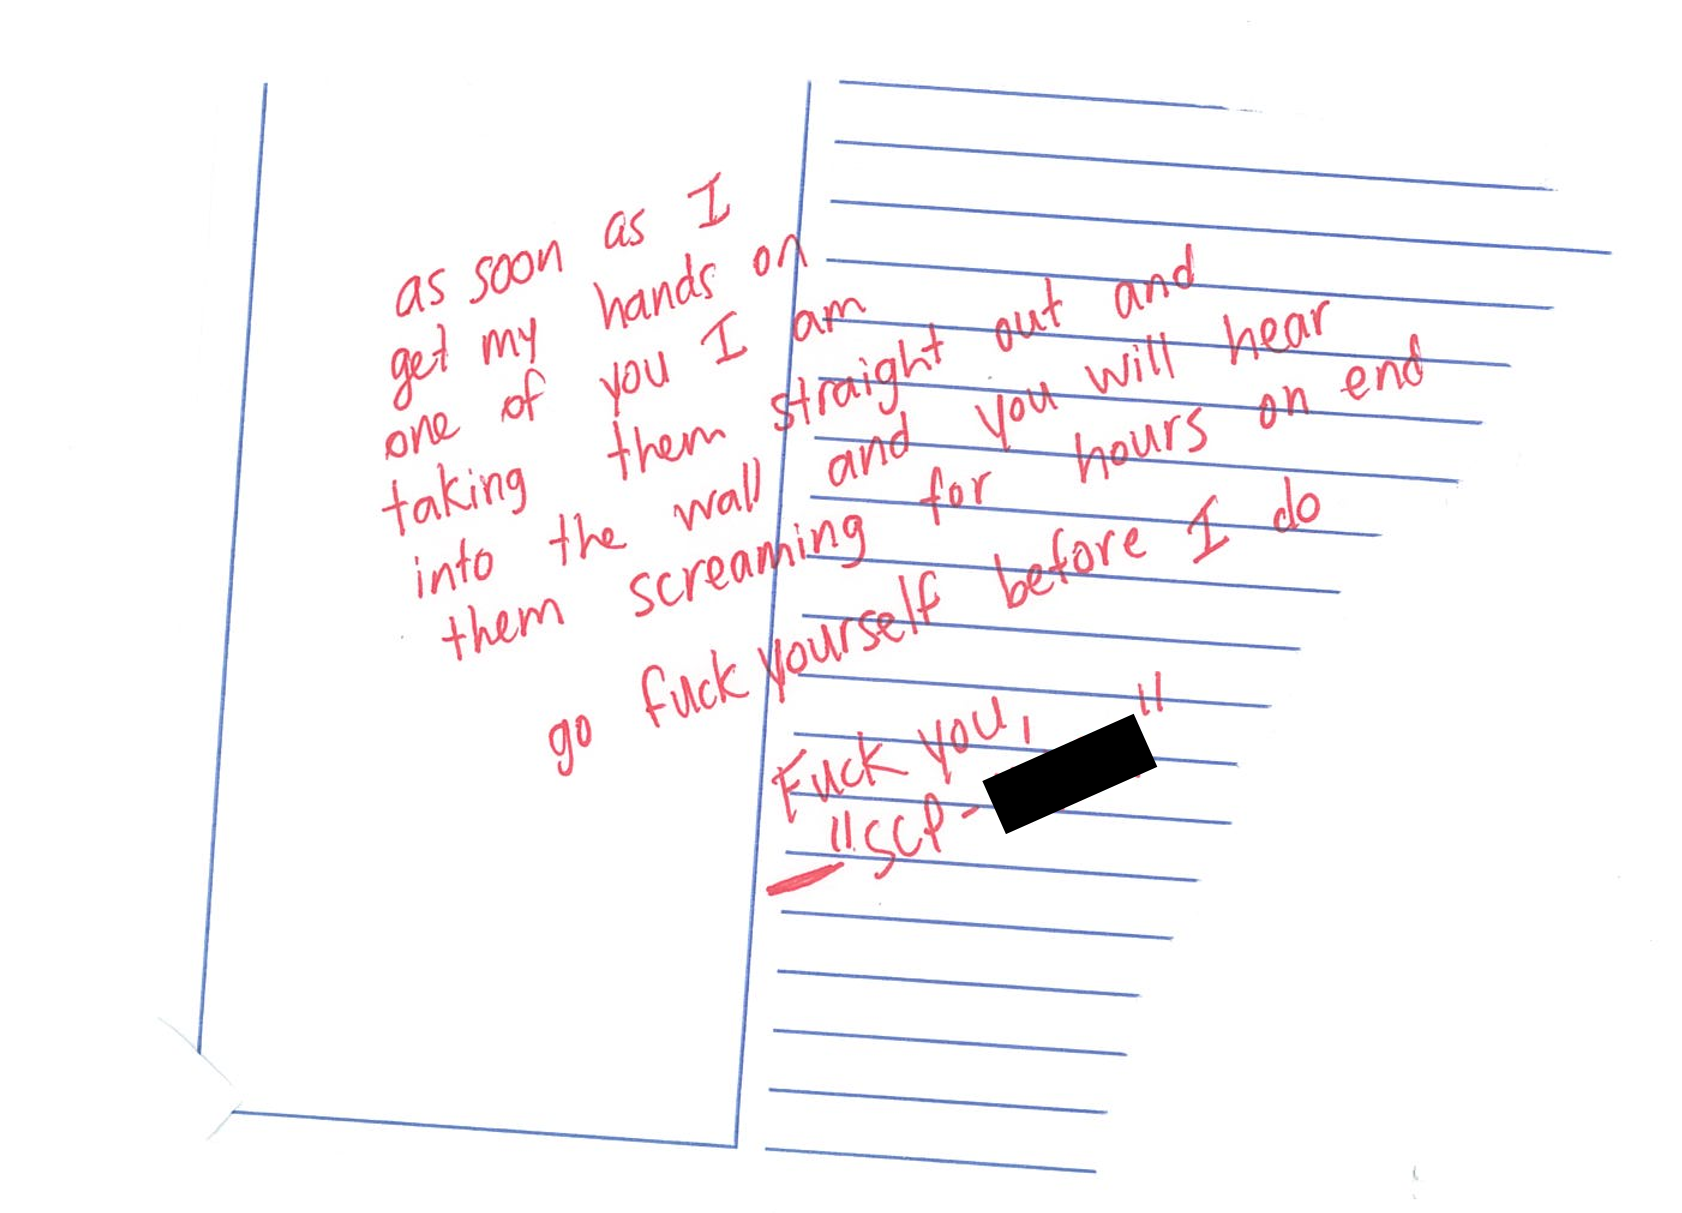 as soon as I
get my hands on
one of you I am
taking them straight out and
into the wall and you will hear
them screaming for hours on end
go fuck yourself before I do
Fuck you,
"SCP-"